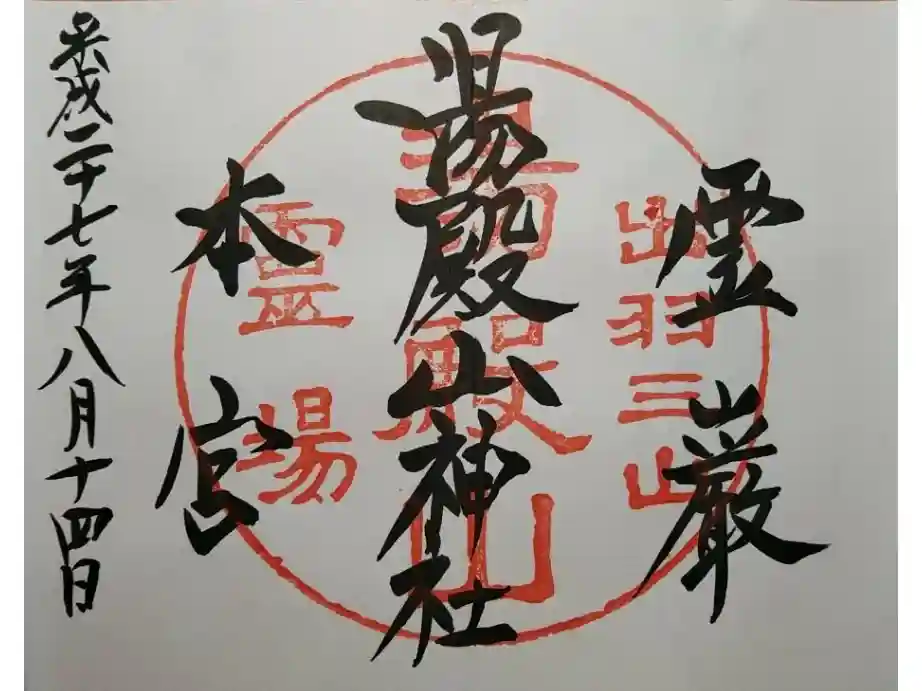 霊巌
湯殿山神社
本宮
平成二十七年八月十四日
出羽三山
湯殿山
霊場